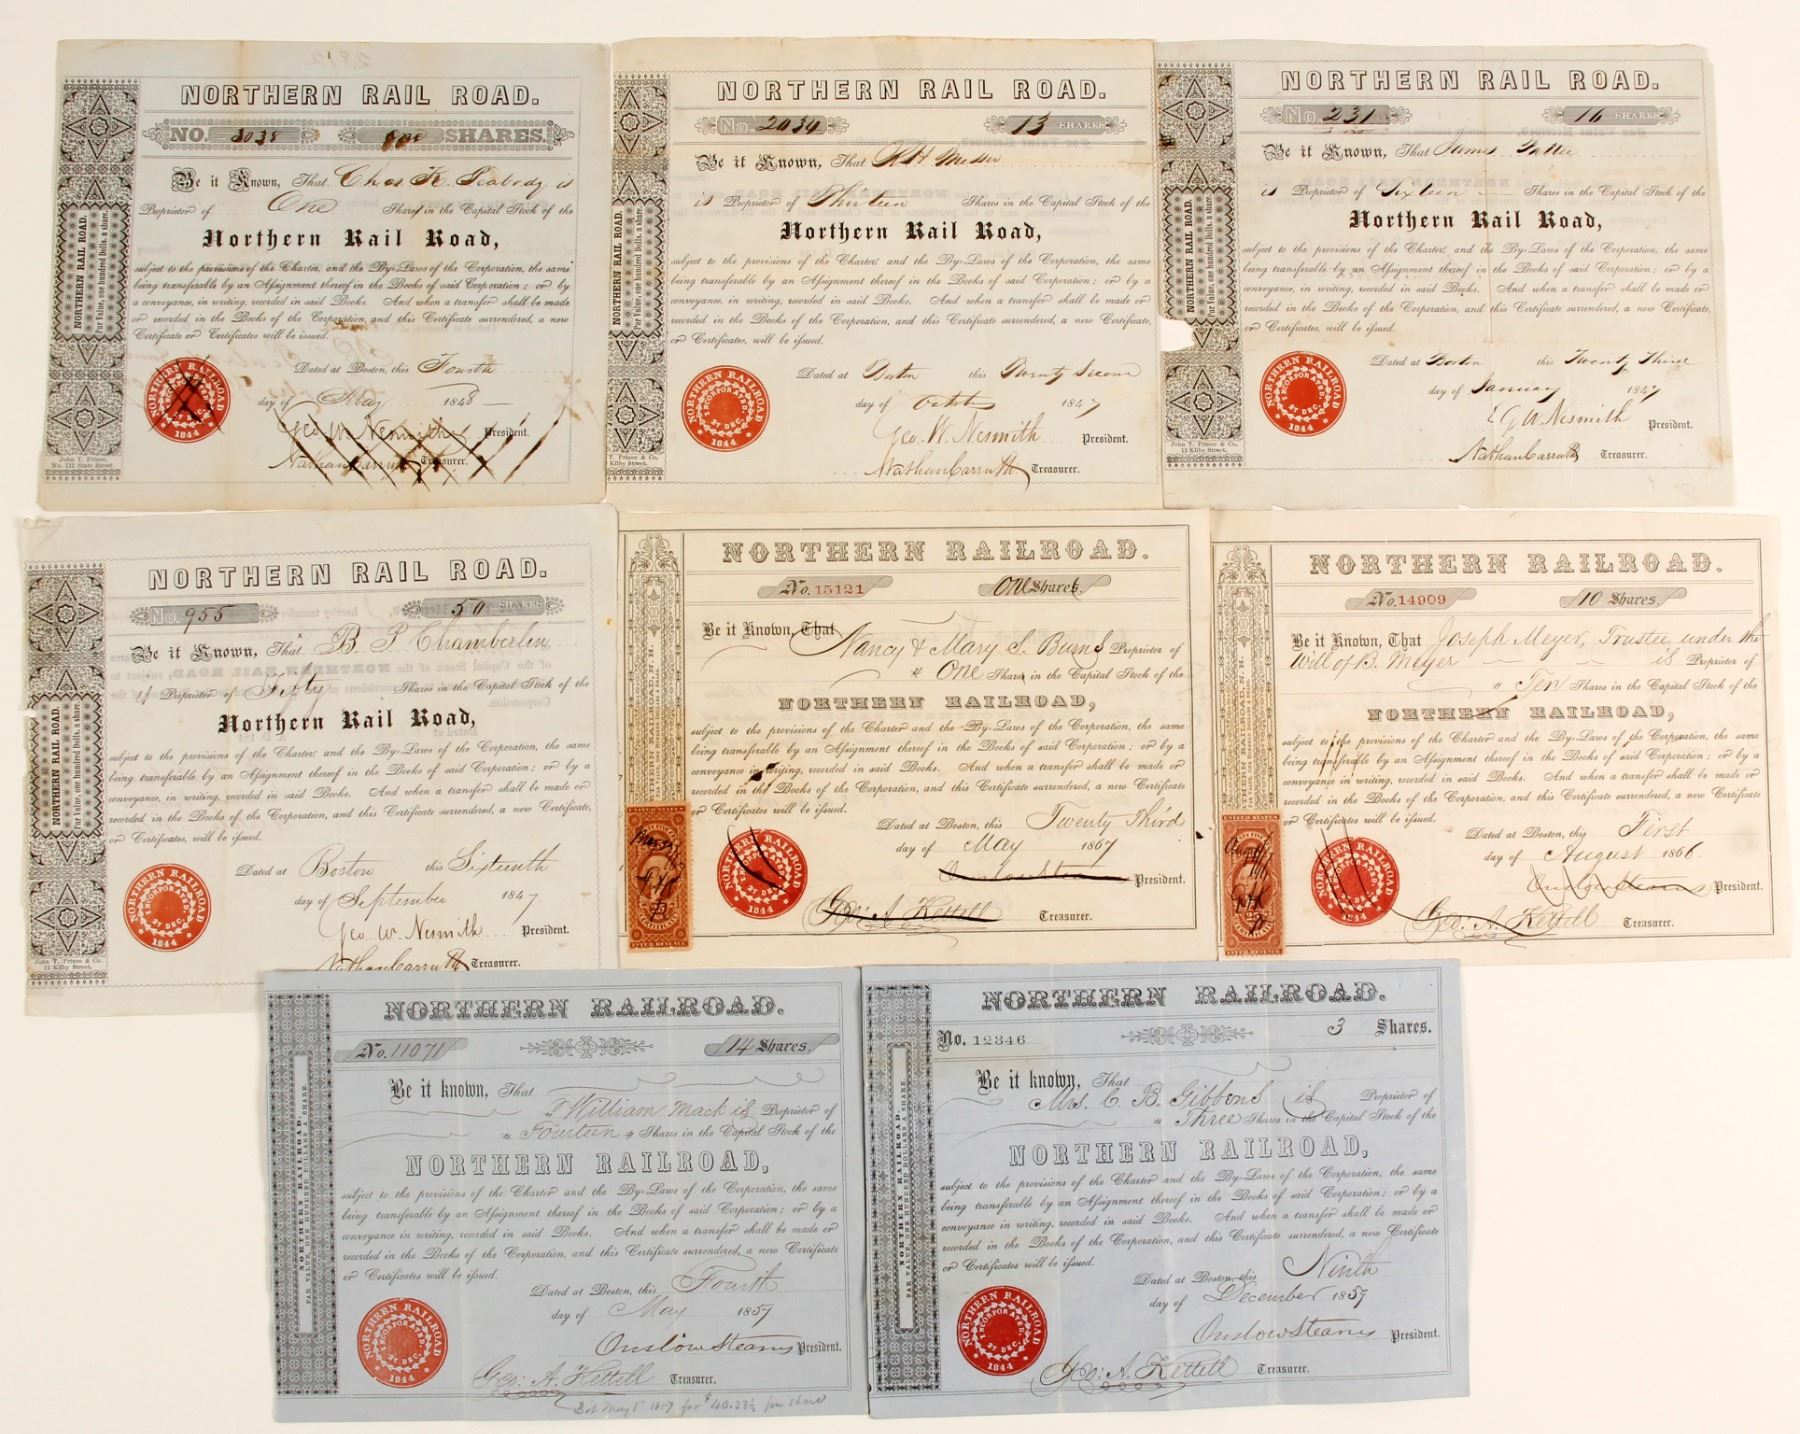 NORTHERN RAIL ROAD.
NO. 3038 One SHARES.
Be it Known, That Chas K. Peabody is
Proprietor of One Shares in the Capital Stock of the
Northern Rail Road,
subject to the provisions of the Charter, and the By-Laws of the Corporation, the same
being transferable by an Assignment thereof in the Books of said Corporation; or by a
conveyance, in writing, recorded in said Books. And when a transfer shall be made
or recorded in the Books of the Corporation, and this Certificate surrendered, a new
Certificate or Certificates will be issued.
Dated at Boston, this Fourth
day of May 1848
Geo. W. Nesmith President.
Nathan Carruth Treasurer.
NORTHERN RAIL ROAD.
Par Value, one hundred Dolls. a share.
NORTHERN RAILROAD
INCORPORATED
27 DEC.
1844
John T. Prince,
No. 112 State Street.
NORTHERN RAIL ROAD.
No. 2034 13 SHARES
Be it Known, That R H Messer
is Proprietor of Thirteen Shares in the Capital Stock of the
Northern Rail Road,
subject to the provisions of the Charter; and the By-Laws of the Corporation, the same
being transferable by an Assignment thereof in the Books of said Corporation; or by a
conveyance, in writing, recorded in said Books. And when a transfer shall be made or
recorded in the Books of the Corporation, and this Certificate surrendered, a new Certificate,
or Certificates, will be issued.
Dated at Boston this Twenty Second
day of October 1847
Geo. W. Nesmith President.
Nathan Carruth Treasurer.
NORTHERN RAIL ROAD.
Par Value, one hundred Dolls. a share.
NORTHERN RAILROAD
INCORPORATED
27 DEC.
1844
T. Prince & Co.
Kilby Street.
NORTHERN RAIL ROAD.
No. 231 16 SHARES
Be it Known, That James
is Proprietor of Sixteen Shares in the Capital Stock of the
Northern Rail Road,
subject to the provisions of the Charter; and the By-Laws of the Corporation, the same
being transferable by an Assignment thereof in the Books of said Corporation; or by a
conveyance, in writing, recorded in said Books. And when a transfer shall be made or
recorded in the Books of the Corporation, and this Certificate surrendered, a new Certificate,
or Certificates, will be issued.
Dated at Boston this Twenty Third
day of January 1847
G W Nesmith President.
Nathan Carruth Treasurer.
NORTHERN RAIL ROAD.
Par Value, one hundred Dolls. a share.
NORTHERN RAILROAD
INCORPORATED
27 DEC.
1844
John T. Prince & Co.
13 Kilby Street.
NORTHERN RAIL ROAD.
No. 955 50 SHARES
Be it Known, That B. P. Chamberlin
is Proprietor of Fifty Shares in the Capital Stock of the
Northern Rail Road,
subject to the provisions of the Charter; and the By-Laws of the Corporation, the same
being transferable by an Assignment thereof in the Books of said Corporation; or by a
conveyance, in writing, recorded in said Books. And when a transfer shall be made or
recorded in the Books of the Corporation, and this Certificate surrendered, a new Certificate,
or Certificates, will be issued.
Dated at Boston this Sixteenth
day of September 1847.
Geo. W. Nesmith President.
Nathan Carruth Treasurer.
NORTHERN RAIL ROAD.
Par Value, one hundred Dolls. a share.
NORTHERN RAILROAD
INCORPORATED
27 DEC.
1844
John T. Prince & Co.
13 Kilby Street.
NORTHERN RAILROAD.
No. 15121 One Shares.
Be it Known, That Nancy & Mary S. Burns Proprietor of
One Shares in the Capital Stock of the
NORTHERN RAILROAD,
subject to the provisions of the Charter and the By-Laws of the Corporation, the same
being transferable by an Assignment thereof in the Books of said Corporation; or by a
conveyance in writing, recorded in said Books. And when a transfer shall be made or
recorded in the Books of the Corporation, and this Certificate surrendered, a new Certificate
or Certificates will be issued.
Dated at Boston, this Twenty Third
day of May 1867
Onslow Stearns President.
Geo: A. Kettell Treasurer.
NORTHERN RAILROAD
INCORPORATED
27 DEC.
1844
NORTHERN RAILROAD.
No. 14909 10 Shares.
Be it Known, That Joseph Meyer, Trustee under the
Will of B. Meyer is Proprietor of
Ten Shares in the Capital Stock of the
NORTHERN RAILROAD,
subject to the provisions of the Charter and the By-Laws of the Corporation, the same
being transferable by an Assignment thereof in the Books of said Corporation; or by a
conveyance in writing, recorded in said Books. And when a transfer shall be made or
recorded in the Books of the Corporation, and this Certificate surrendered, a new Certificate
or Certificates will be issued.
Dated at Boston, this First
day of August 1866.
Onslow Stearns President.
Geo. A. Kettell Treasurer.
UNITED STATES
INTER. REVENUE
NORTHERN RAILROAD
27 DEC.
1844
NORTHERN RAILROAD.
No. 11071 14 Shares.
Be it known, That
William Mack is Proprietor of
Fourteen Shares in the Capital Stock of the
NORTHERN RAILROAD,
subject to the provisions of the Charter and the By-Laws of the Corporation, the same
being transferable by an Assignment thereof in the Books of said Corporation; or by a
conveyance in writing, recorded in said Books. And when a transfer shall be made or
recorded in the Books of the Corporation, and this Certificate surrendered, a new Certificate
or Certificates will be issued.
Dated at Boston, this Fourth
day of May 1857
Onslow Stearns President.
Geo: A. Kettell Treasurer.
May 5 1857 for $40.23½ per share
NORTHERN RAILROAD,
PAR VALUE, ONE HUNDRED DOLLARS A SHARE.
NORTHERN RAILROAD
INCORPORATED
27 DEC.
1844
NORTHERN RAILROAD.
No. 12346 3 Shares.
Be it known, That
Mrs. C. B. Gibbons is Proprietor of
Three Shares in the Capital Stock of the
NORTHERN RAILROAD,
subject to the provisions of the Charter and the By-Laws of the Corporation, the same
being transferable by an Assignment thereof in the Books of said Corporation; or by a
conveyance in writing, recorded in said Books. And when a transfer shall be made or
recorded in the Books of the Corporation, and this Certificate surrendered, a new Certificate
or Certificates will be issued.
Dated at Boston, this Ninth
day of December 1857
Onslow Stearns President.
Geo: A. Kettell Treasurer.
NORTHERN RAILROAD.
PAR VALUE, ONE HUNDRED DOLLARS A SHARE
NORTHERN RAILROAD
INCORPORATED
27 DEC.
1844